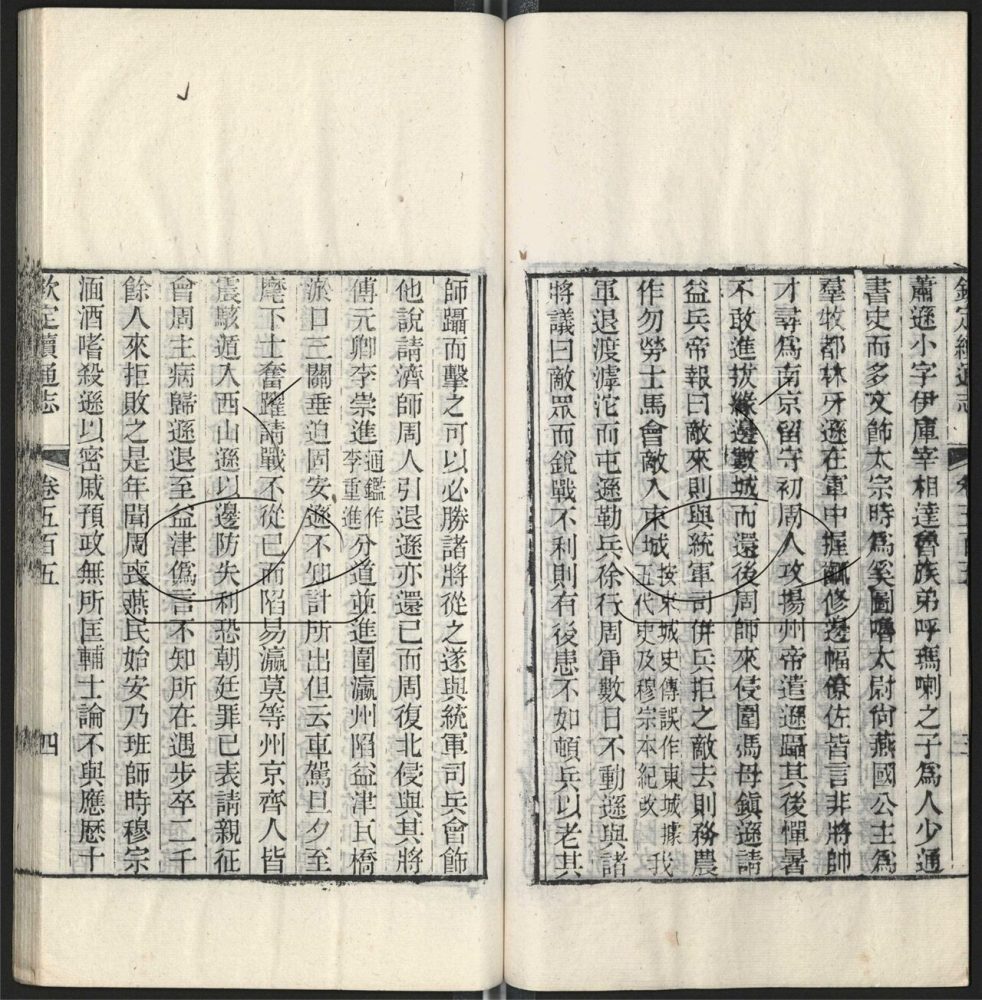 欽定續通志
蕭遜小字伊庫宰相達魯族弟呼瑪喇之子爲人少通
書史而多文飾太宗時爲奚圖嚕太尉尙燕國公主爲
羣牧都林牙遜在軍中握齱修邊幅僚佐皆言非將帥
才尋爲南京留守初周人攻揚州帝遣遜躡其後憚暑
不敢進拔緣邊數城而還後周師來侵圍馮母鎭遜請
益兵帝報曰敵來則與統軍司併兵拒之敵去則務農
作勿勞士馬會敵入束城按束城史傳誤作東城據我五代史及穆宗本紀改
軍退渡滹沱而屯遜勒兵徐行周軍數日不動遜與諸
將議曰敵眾而銳戰不利則有後患不如頓兵以老其
師躡而擊之可以必勝諸將從之遂與統軍司兵會飭
他說請濟師周人引退遜亦還已而周復北侵與其將
傅元卿李崇進通鑑作李重進分道並進圍瀛州陷益津瓦橋
淤口三關垂迫固安遜不知計所出但云車駕旦夕至
麾下士奮躍請戰不從已而陷易瀛莫等州京齊人皆
震駭遁入西山遜以邊防失利恐朝廷罪已表請親征
會周主病歸遜退至益津僞言不知所在遇步卒二千
餘人來拒敗之是年聞周喪燕民始安乃班師時穆宗
湎酒嗜殺遜以密戚預政無所匡輔士論不與應歷十
欽定續通志
卷五百五
四